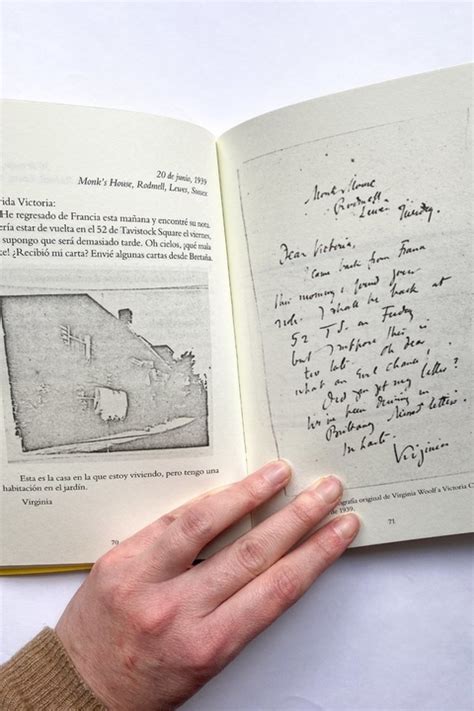 20 de junio, 1939
Monk's House, Rodmell, Lewes, Sussex
rida Victoria:
He regresado de Francia esta mañana y encontré su nota.
ería estar de vuelta en el 52 de Tavistock Square el viernes,
supongo que será demasiado tarde. Oh cielos, ¡qué mala
te! ¿Recibió mi carta? Envié algunas cartas desde Bretaña.
Esta es la casa en la que estoy viviendo, pero tengo una
habitación en el jardín.
Virginia
70
Monks House
Rodmell
Lewes Tuesday.
Dear Victoria,
I came back from France
this morning & found your
note. I shall be back at
52 T.S. on Friday
but I suppose this is
too late. Oh dear
what an evil chance!
Did you get my letter?
We've been driving in
Brittany letters.
In haste
Virginia
ografía original de Virginia Woolf a Victoria
de 1939.
71